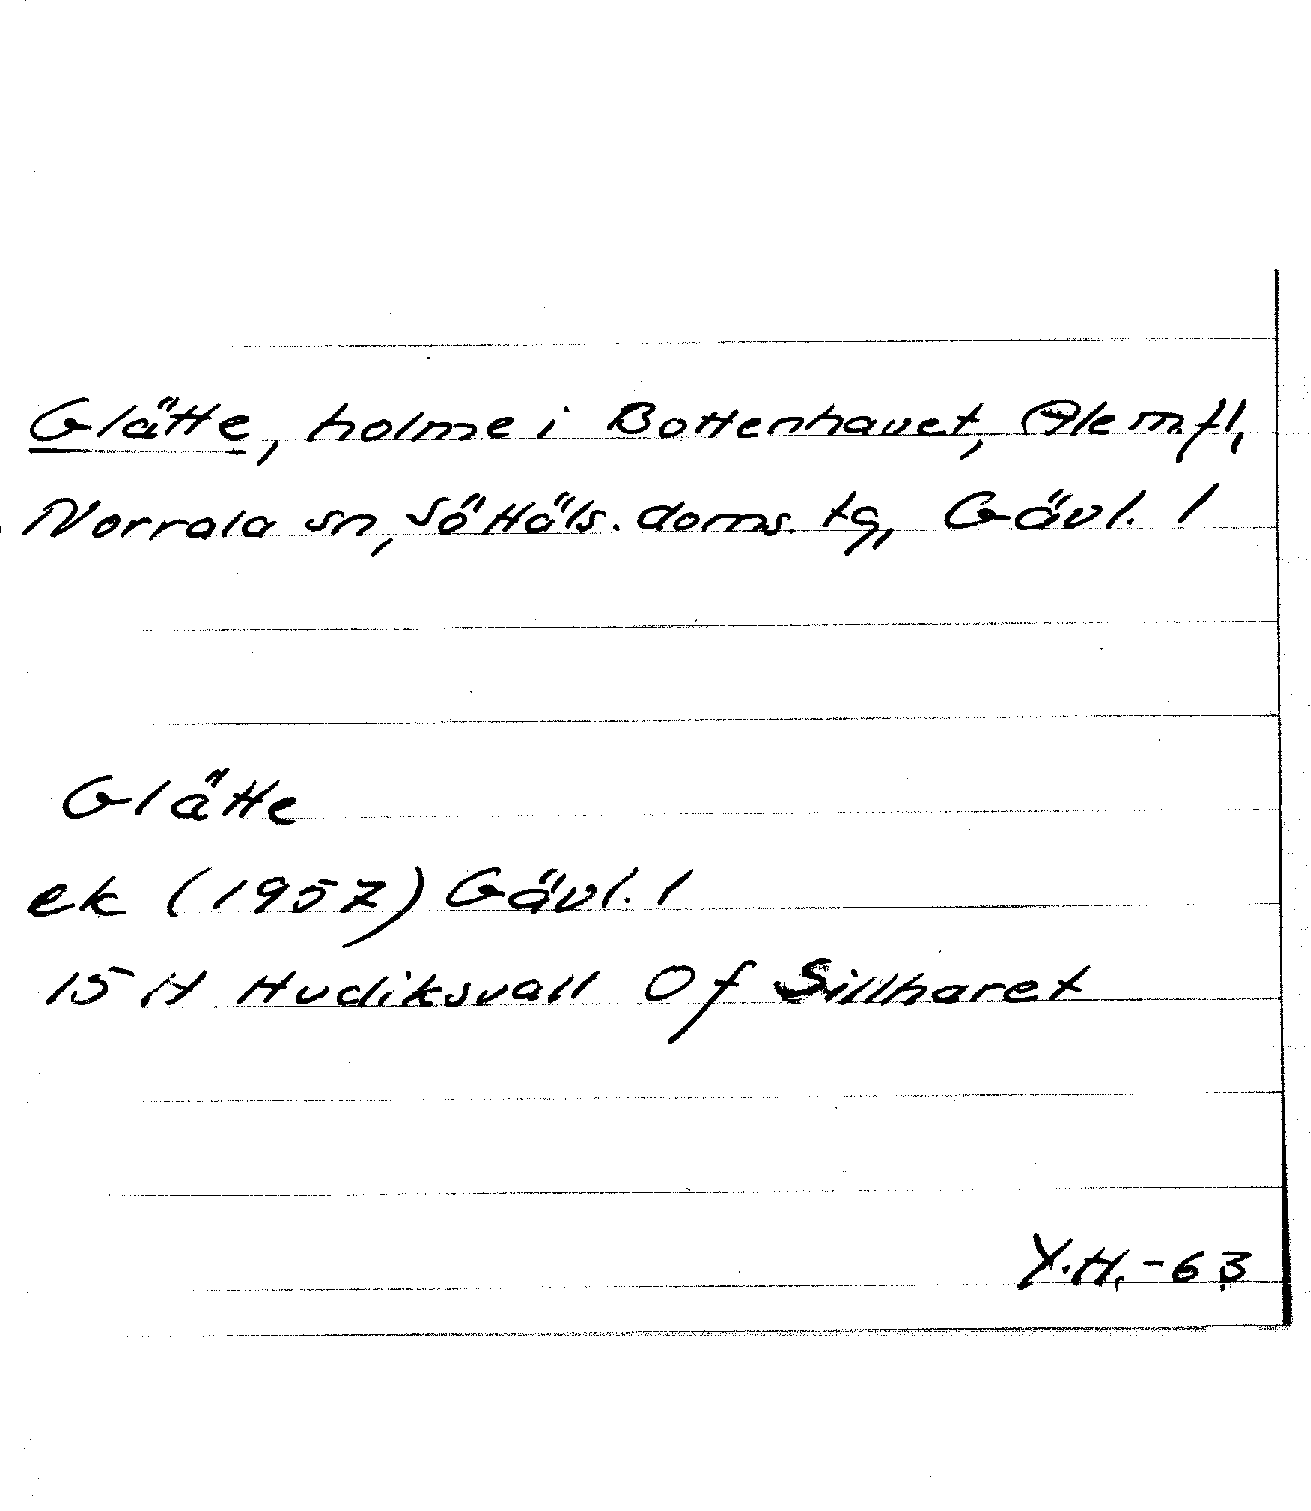 Glätte, holme i Bottenhavet, Ale m.fl,
Norrala sn, Sö Häls. doms. tg, Gävl. l
Glätte
ek (1957) Gävl. l
15 H Hudiksvall 0 f Sillharet
Y.H.-63